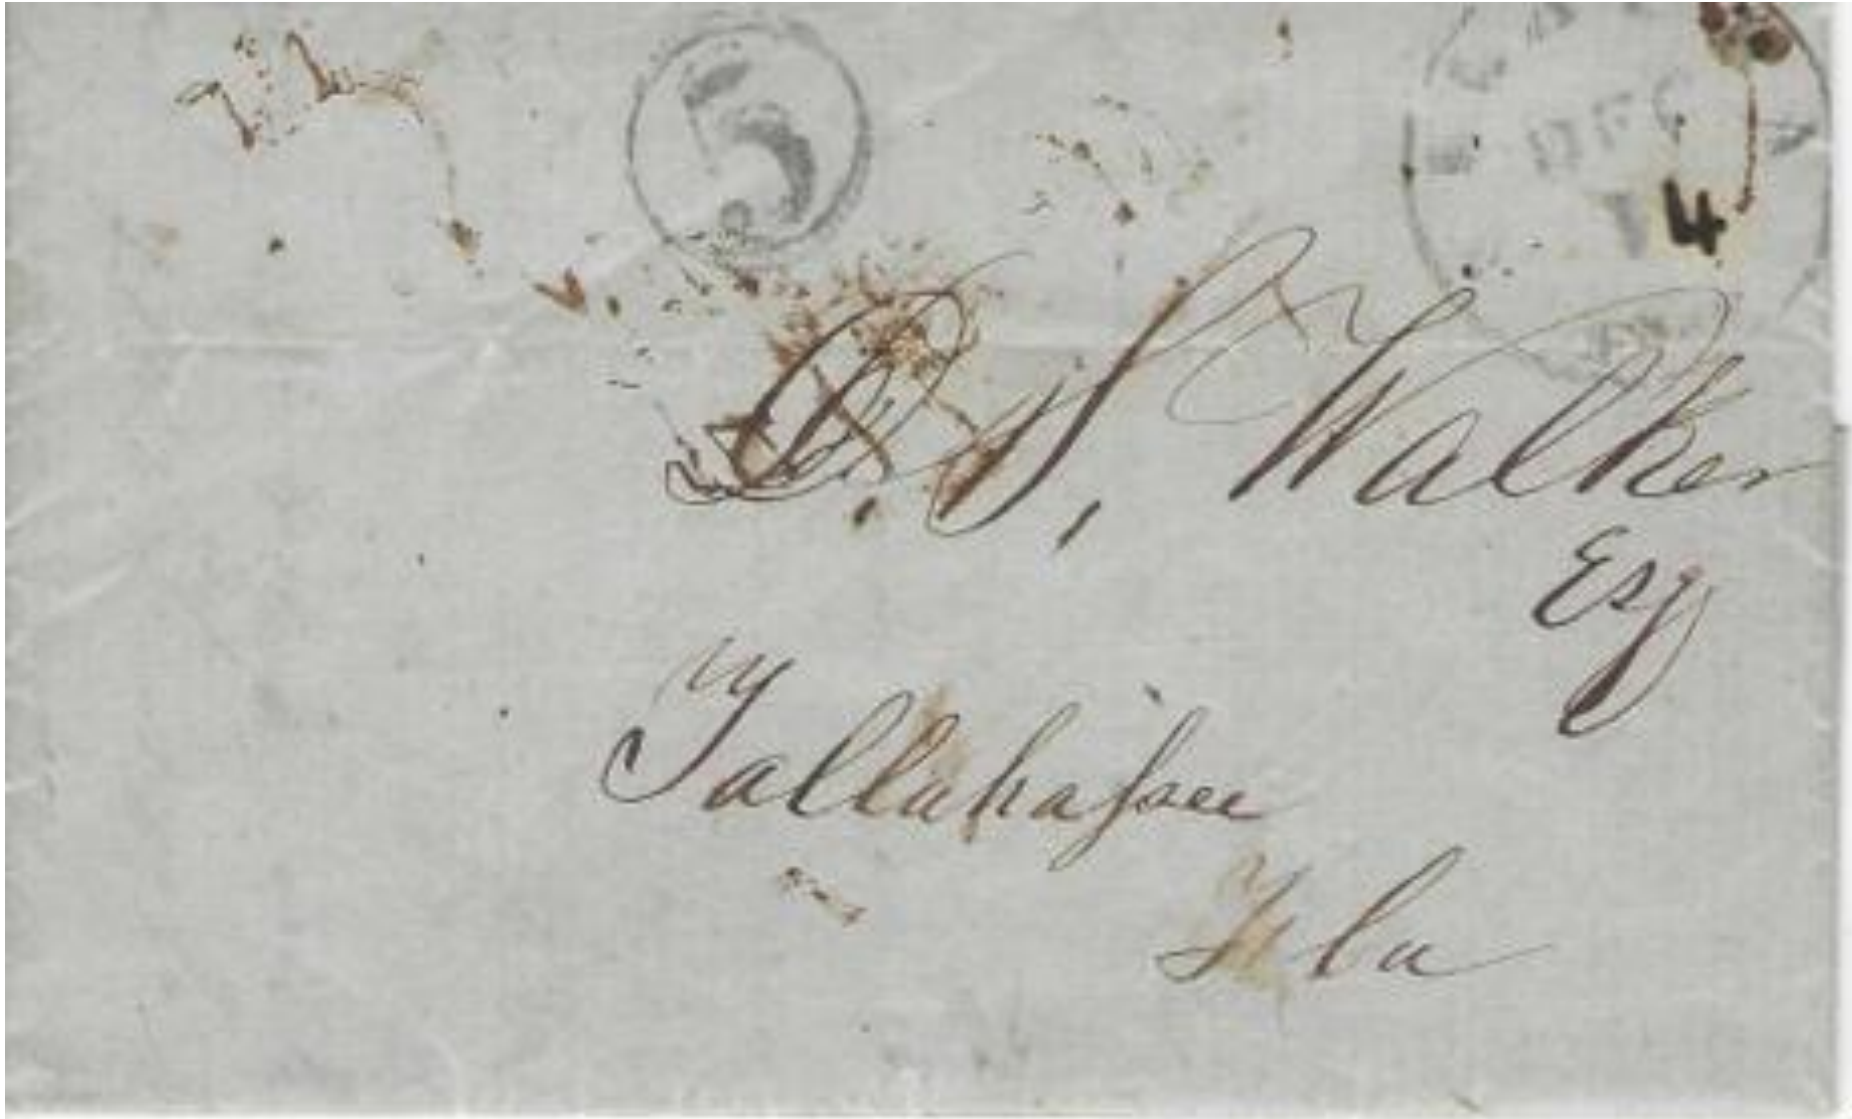 5
DEC
4
D. S. Walker
Esq
Tallahassee
Fla